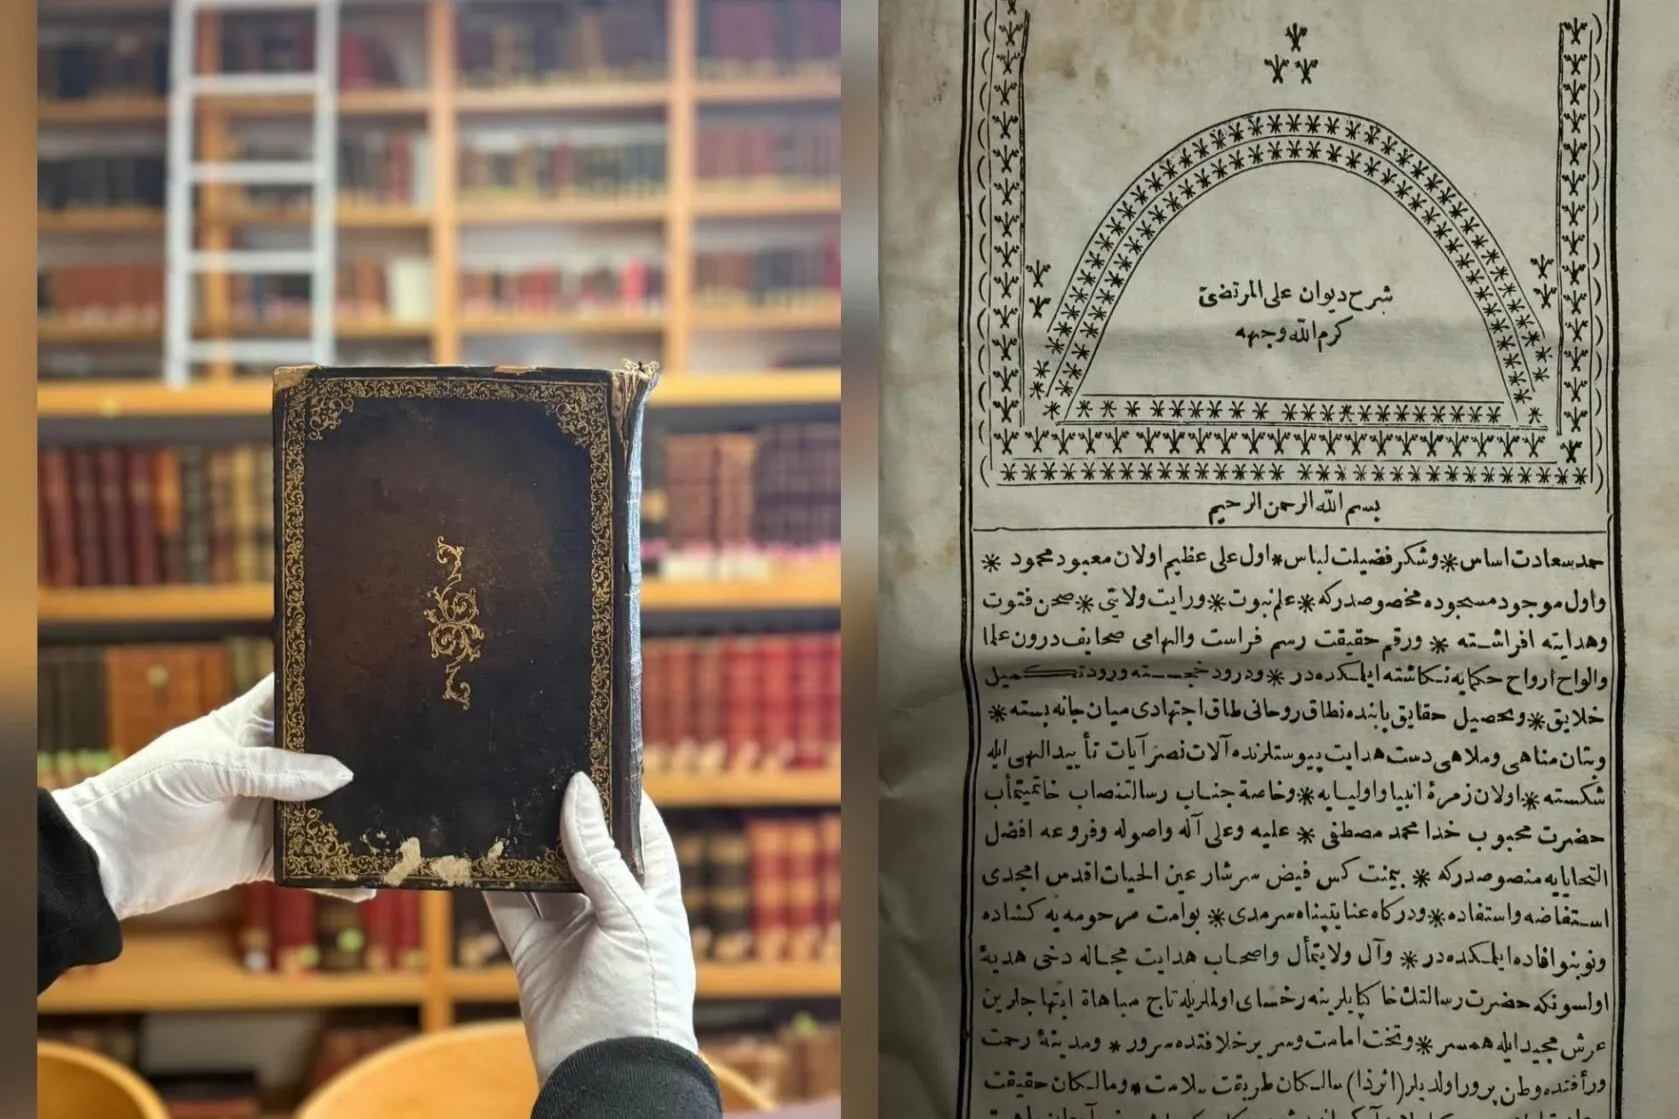 شرح ديوان على المرتضى
كرم الله وجهه
بسم الله الرحمن الرحيم
حمد سعادت اساس * وشكر فضيلت لباس * اول على عظيم اولان معبود محمود *
واول موجود مسجوده مخصوصدركه * علم نبوت * ورايت ولايتى * صحن فتوت
وهدايته افراشته * ورقم حقيقت رسم فراست والهامى صحايف درون علما
والواح ارواح حكمايه نكاشته ايلكده در * ودرود خجسته ورود تكميل
خلايق * وتحصيل حقايق يابنده نطاق روحانى طاق اجتهادى ميان جانه بسته *
وبتان مناهى وملاهى دست هدايت پيوستلرنده آلات نصر آيات تأييد الهى ايله
شكسته * اولان زمرۀ انبيا واوليايه * وخاصة جناب رسالتنصاب خاتميتمأب
حضرت محبوب خدا محمد مصطفى * عليه وعلى آله واصوله وفروعه افضل
التحايايه منصوصدركه * يمنت كس فيض سرشار عين الحيات اقدس امجدى
استفاضه واستفاده * ودركاه عنايتپناه سرمدى * بو امت مرحومه يه كشاده
ونوبنو افاده ايلكده در * وآل ولايتمأل واصحاب هدايت مجاله دخى هديۀ
اولسونكه حضرت رسالتك خاكپايلرينه رخساى اولملريله تاج مباهاة ابتهاجلرين
عرش مجيد ايله همسر * وتخت امامت وسرير خلافتده سرور * ومدينۀ رحمت
ورأفتده وطن پرور اولديلر (اثرذا) سالكان طريقت سلامت * ومالكان حقيقت